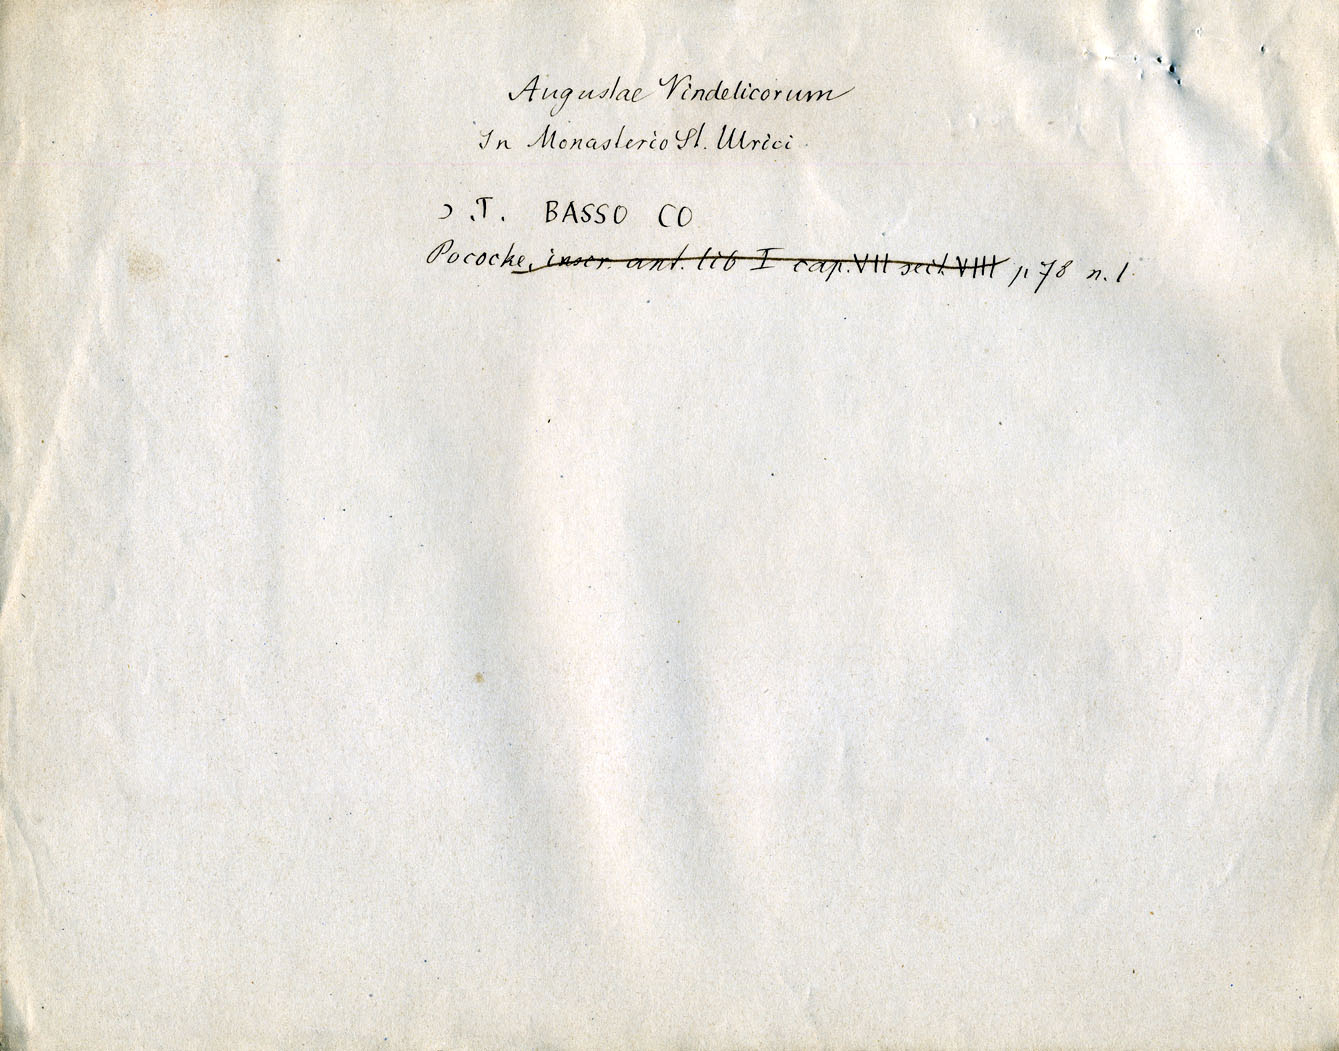 Augustae Vindelicorum
In Monasterio St. Ulrici
Ɔ .T. BASSO CO
Pococke, inscr. ant. lib I cap. VII sect. VIIII p 78 n. 1